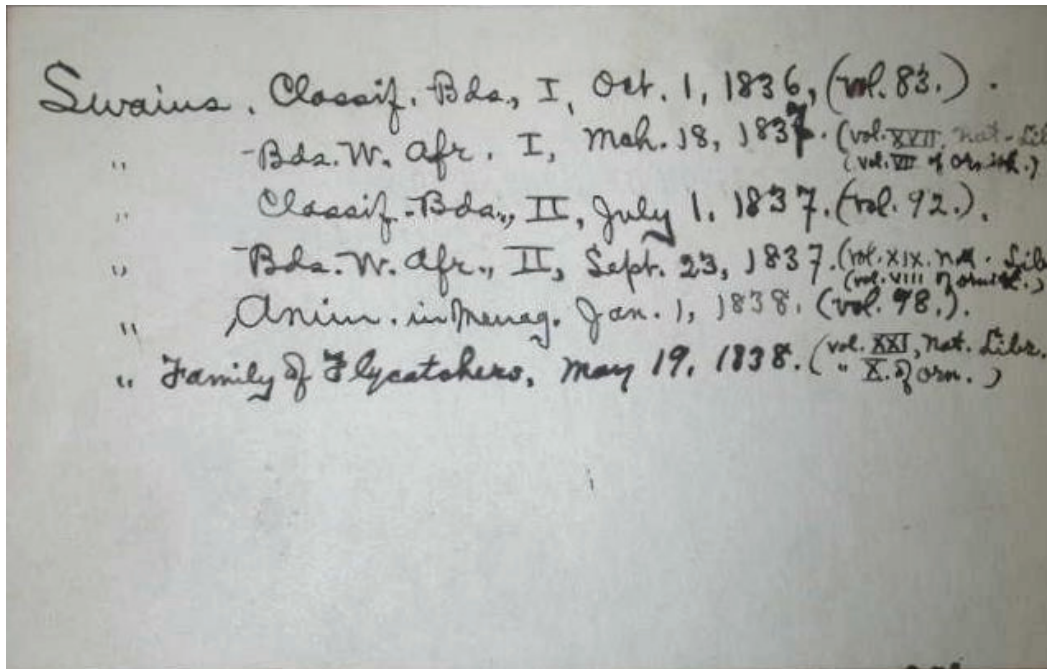 Swains. Classif. Bds., I, Oct. 1, 1836, (vol. 83.).
" Bds. W. Afr. I, Mch. 18, 1837. (vol. XVII, Nat. Lib
(vol. VII of Ornith.)
" Classif. Bds., II, July 1. 1837. (vol. 92.).
" Bds. W. Afr., II, Sept. 23, 1837. (vol. XIX. Nat. Lib
(vol. VIII of ornith.)
" Anim. in Menag. Jan. 1, 1838. (vol. 98.).
" Family of Flycatchers, May 19, 1838. (vol. XXI, Nat. Libr.
" X. of orn.)